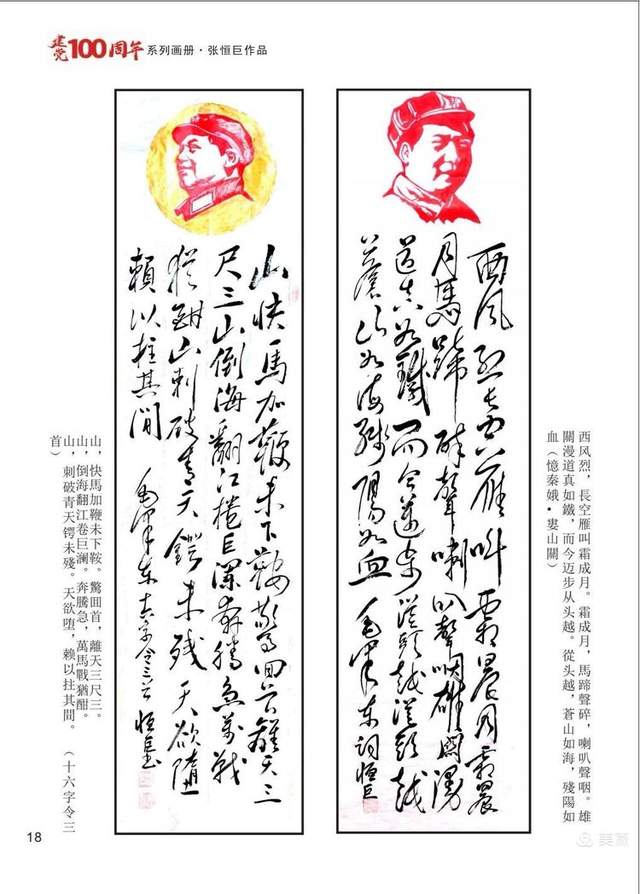 建党100周年系列画册·张恒巨作品
西风烈，長空雁叫霜成月。霜成月，馬蹄聲碎，喇叭聲咽。雄
關漫道真如鐵，而今迈步从头越。從头越，蒼山如海，殘陽如
血（憶秦娥•婁山關）
西风烈长空雁叫霜晨月霜晨
月馬蹄碎聲喇叭聲咽雄關漫
道真如鐵而今邁步從頭越從頭越
蒼山如海殘陽如血 毛澤东词恒巨
山快馬加鞭未下鞍驚回首離天三
尺三山倒海翻江捲巨瀾奔騰急萬戰
犹酣山刺破青天鍔未残天欲墮
賴以拄其間 毛澤东十六字令三首 恒巨
山，快馬加鞭未下鞍。驚囬首，離天三尺三。
山，倒海翻江卷巨澜。奔騰急，萬馬戰猶酣。
山，刺破青天锷未殘。天欲堕，赖以拄其間。（十六字令三
首）
18
美篇